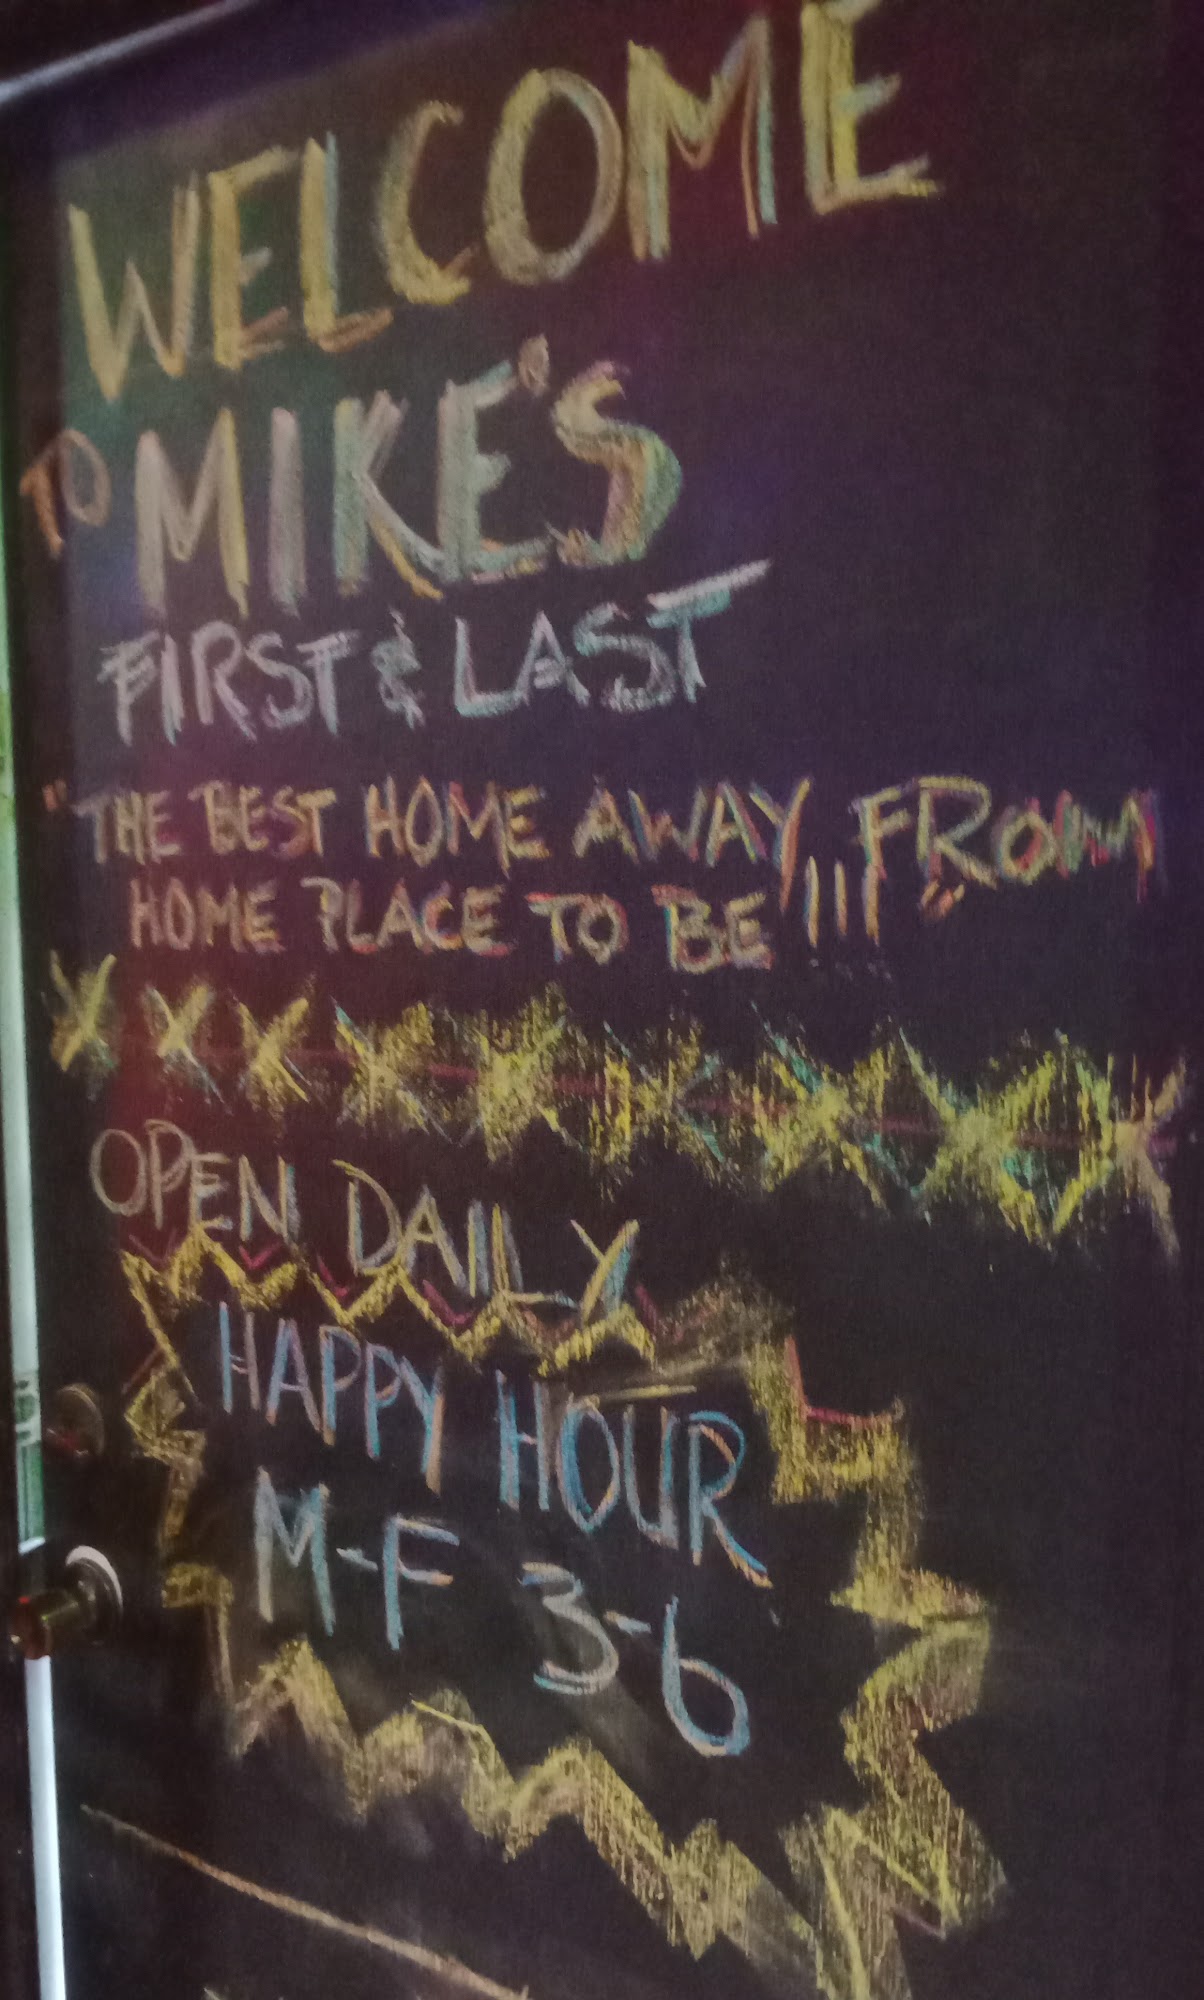 WELCOME
TO MIKE'S
FIRST & LAST
"THE BEST HOME AWAY FROM
HOME PLACE TO BE!!!"
OPEN DAILY
HAPPY HOUR
M-F 3-6